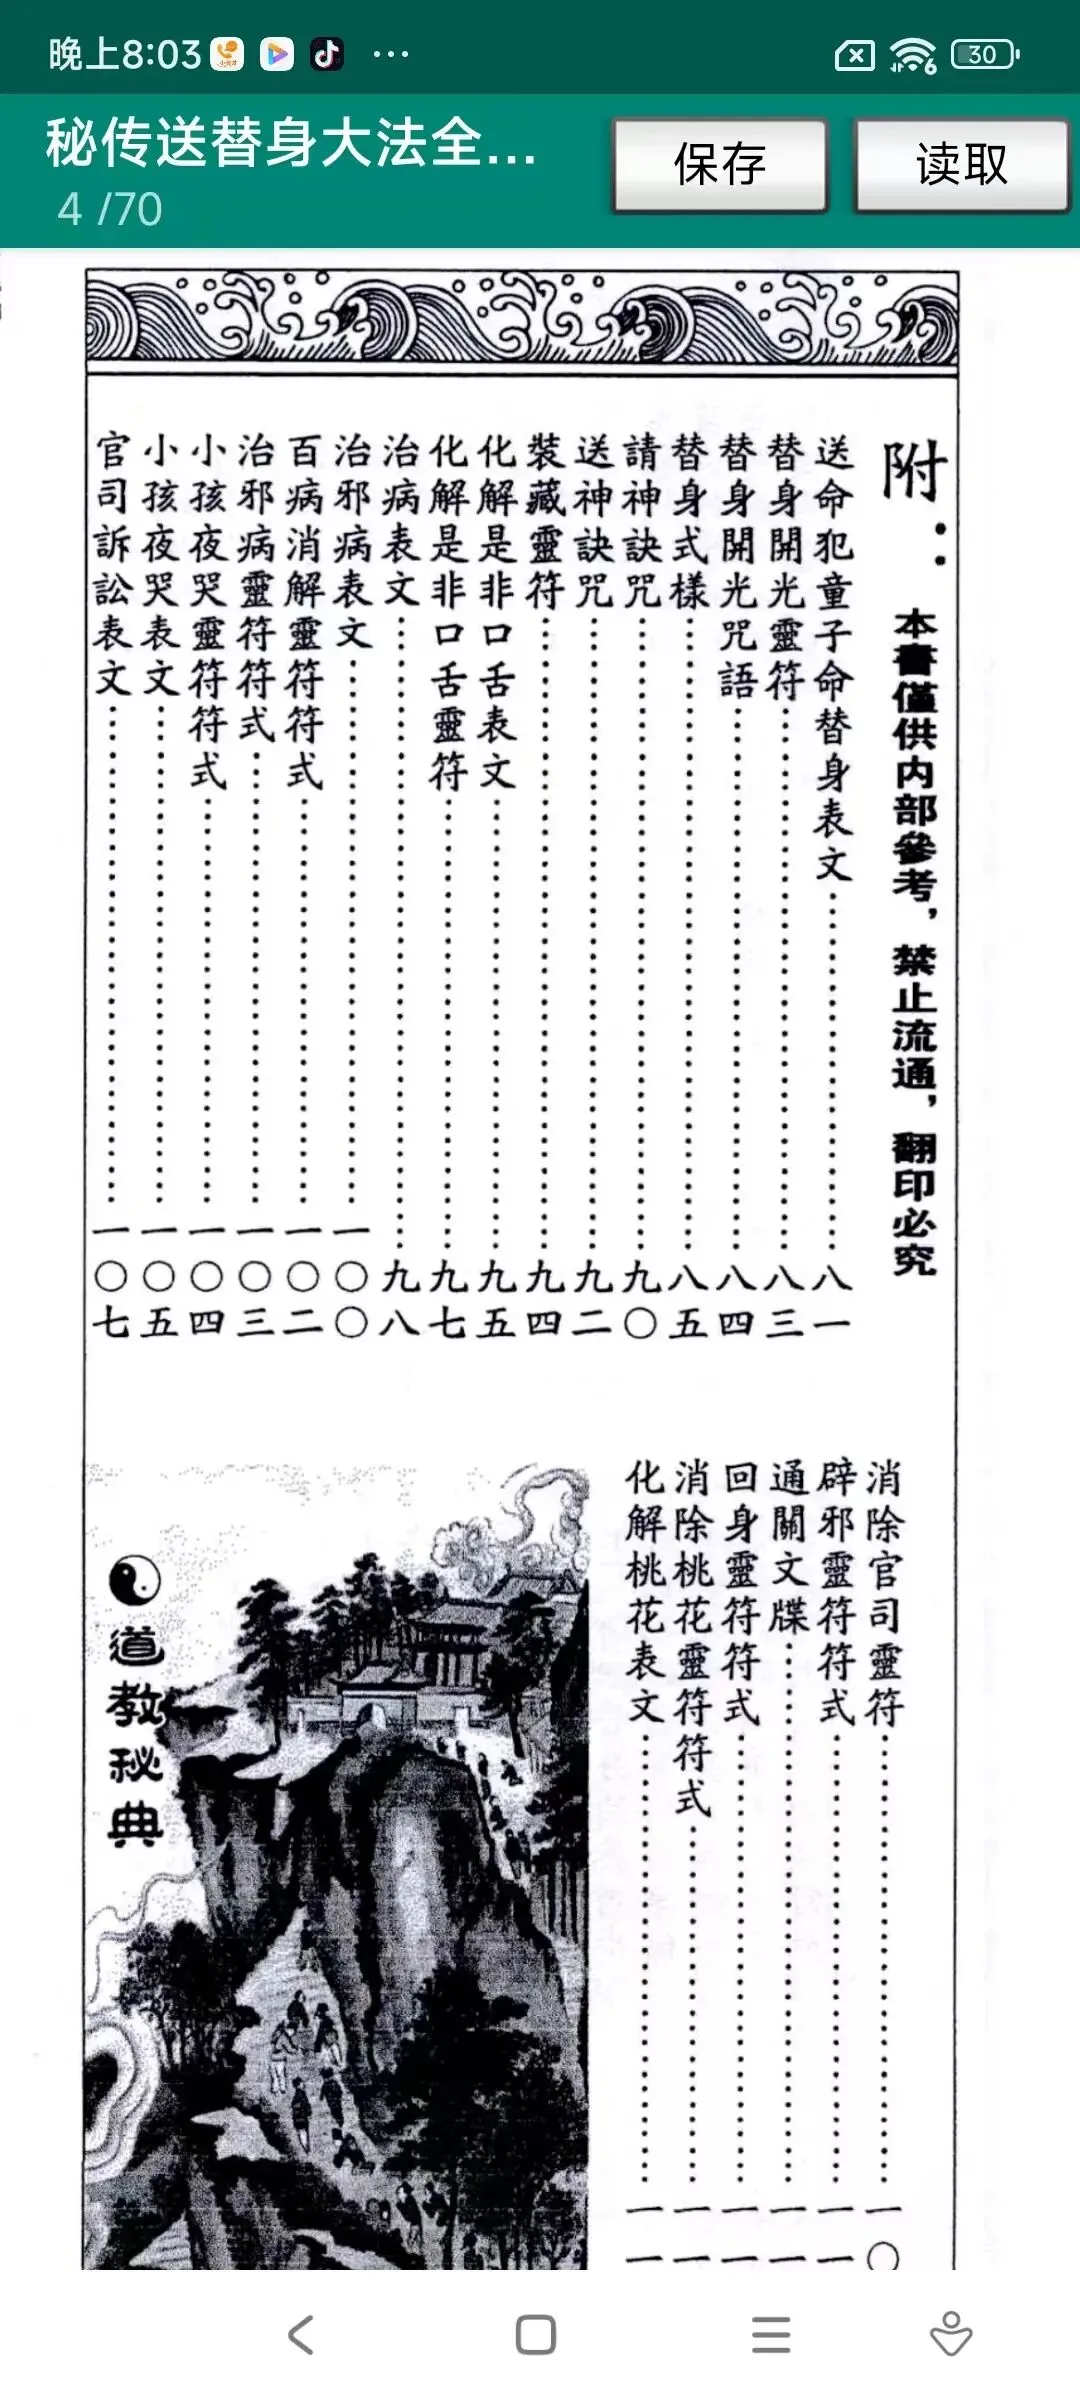 晚上8:03
小天才
...
6
30
秘传送替身大法全...
4 /70
保存
读取
附：本書僅供内部參考，禁止流通，翻印必究
送命犯童子命替身表文……八一
替身開光靈符……八三
替身開光咒語……八四
替身式樣……八五
請神訣咒……九〇
送神訣咒……九二
裝藏靈符……九四
化解是非口舌表文……九五
化解是非口舌靈符……九七
治病表文……九八
治邪病表文……一〇〇
百病消解靈符符式……一〇二
治邪病靈符符式……一〇三
小孩夜哭靈符符式……一〇四
小孩夜哭表文……一〇五
官司訴訟表文……一〇七
消除官司靈符……一〇
辟邪靈符符式……一一
通關文牒……一一
回身靈符符式……一一
消除桃花靈符符式……一一
化解桃花表文……一一
道教秘典